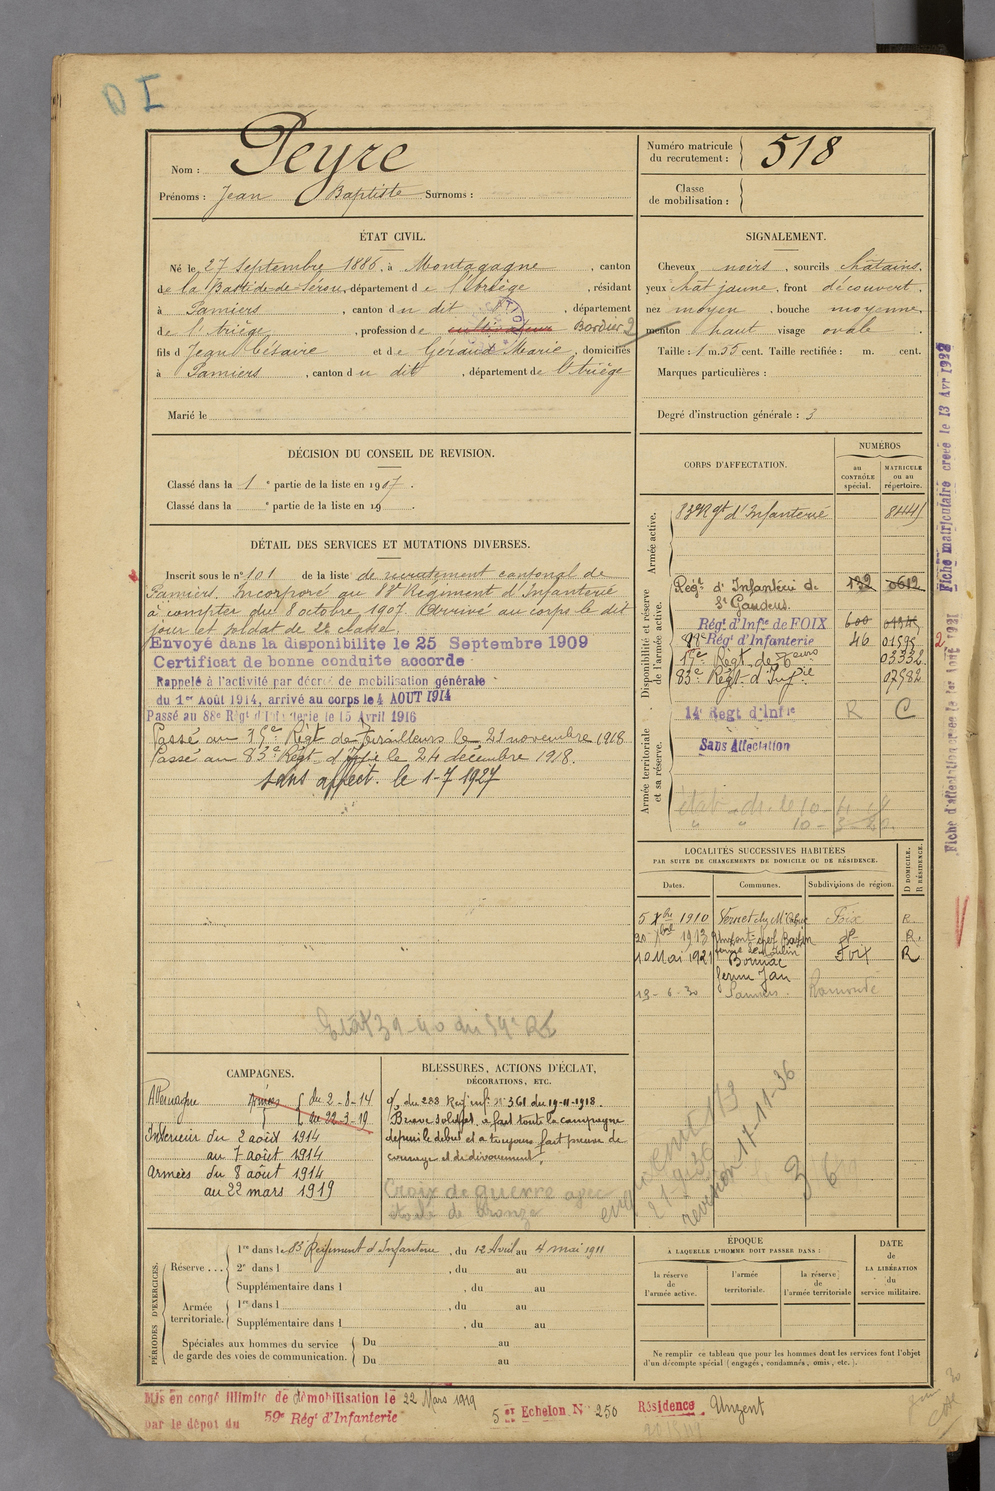 D I
Nom : Peyre
Prénoms : Jean Baptiste Surnoms :
Numéro matricule du recrutement : 518
Classe de mobilisation :
ÉTAT CIVIL.
Né le 27 septembre 1886, à Montagagne, canton
de la Bastide-de-Sérou, département de l'Ariège, résidant
à Pamiers, canton du dit, département
de l'Ariège, profession de cultivateur Bordier 2
fils d Jean Césaire et de Géraud Marie, domiciliés
à Pamiers, canton du dit, département de l'Ariège
Marié le
SIGNALEMENT.
Cheveux noirs, sourcils châtains,
yeux chât jaune, front découvert,
nez moyen, bouche moyenne,
menton haut visage ovale
Taille : 1 m. 55 cent. Taille rectifiée : m. cent.
Marques particulières :
Degré d'instruction générale : 3
DÉCISION DU CONSEIL DE REVISION.
Classé dans la 1e partie de la liste en 1907.
Classé dans la e partie de la liste en 19 .
DÉTAIL DES SERVICES ET MUTATIONS DIVERSES.
Inscrit sous le n° 101 de la liste de recrutement cantonal de
Pamiers. Incorporé au 83e Régiment d'Infanterie
à compter du 8 octobre 1907. Arrivé au corps le dit
jour et soldat de 2e classe.
Envoyé dans la disponibilité le 25 Septembre 1909
Certificat de bonne conduite accordé
Rappelé à l'activité par décret de mobilisation générale
du 1er Août 1914, arrivé au corps le 4 AOUT 1914
Passé au 88e Régt d'Infanterie le 15 Avril 1916
Passé au 35e Régt de Tirailleurs le 21 novembre 1918
Passé au 83e Régt d'Infie le 24 décembre 1918.
sans affect. le 1-7 1927
CORPS D'AFFECTATION.
NUMÉROS
au CONTRÔLE spécial.
MATRICULE ou au répertoire.
Armée active.
83e Rgt d'Infanterie 8441
Disponibilité et réserve de l'armée active.
Régt d'Infanterie de St Gaudens 132 0612
Régt d'Infie de FOIX 600
88e Régt d'Infanterie 46 01595
03332
83e Régt d'Infie 07982
Armée territoriale et sa réserve.
14e Régt d'Infie R C
Sans Affectation
LOCALITÉS SUCCESSIVES HABITÉES
PAR SUITE DE CHANGEMENTS DE DOMICILE OU DE RÉSIDENCE.
Dates. Communes. Subdivisions de région. D DOMICILE. R RÉSIDENCE.
5 Xbre 1910 Vernet Foix R.
1913 do R.
10 Mai 1921 Bonnac Foix R
ferme Jau
13-6-30 Pamiers
CAMPAGNES.
Allemagne Armées du 2-8-14
au 22-3-19
Intérieur du 2 août 1914
au 7 août 1914
Armées du 8 août 1914
au 22 mars 1919
BLESSURES, ACTIONS D'ÉCLAT,
DÉCORATIONS, ETC.
o/ du 288 Reg. inf. n° 361 du 19-11-1918.
Brave soldat, a fait toute la campagne
depuis le début et a toujours fait preuve de
courage et de dévouement.
Croix de guerre avec
étoile de bronze
révision 17-11-36
36
PÉRIODES D'EXERCICES.
Réserve ... 1re dans le 83e Régiment d'Infanterie, du 12 Avril au 4 mai 1911
2e dans l , du au
Supplémentaire dans l , du au
Armée territoriale. 1re dans l , du au
Supplémentaire dans l , du au
Spéciales aux hommes du service de garde des voies de communication. Du au
Du au
ÉPOQUE
À LAQUELLE L'HOMME DOIT PASSER DANS :
la réserve de l'armée active.
l'armée territoriale.
la réserve de l'armée territoriale
DATE de LA LIBÉRATION du service militaire.
Ne remplir ce tableau que pour les hommes dont les services font l'objet
d'un décompte spécial (engagés, condamnés, omis, etc.).
Mis en congé illimité de démobilisation le 22 Mars 1919
par le dépôt du 59e Régt d'Infanterie
5er Echelon N° 250 Résidence Unzent
Fiche matriculaire créée le 13 Avr 1932
Fiche d'affectation créée le 1er Août 1931